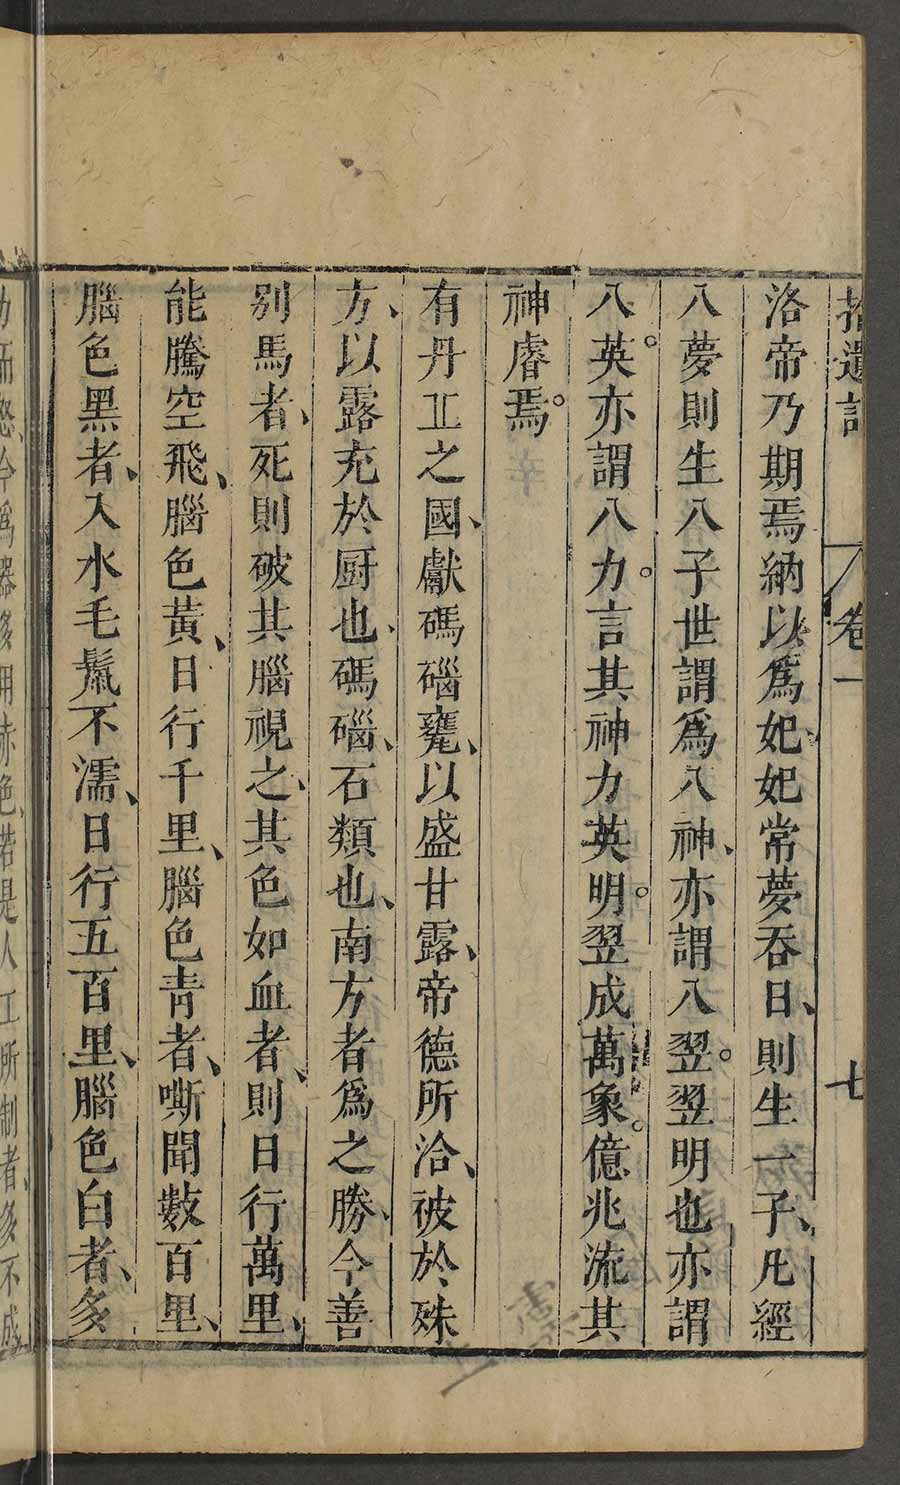 拾遺記 卷一 七
洛帝乃期焉納以爲妃、妃常夢吞日、則生一子、凡經
八夢則生八子世謂爲八神、亦謂八翌。翌明也亦謂
八英。亦謂八力。言其神力英明。翌成萬象。億兆流其
神睿焉。
有丹丘之國、獻碼碯甕、以盛甘露、帝德所洽、被於殊
方、以露充於厨也、碼碯、石類也、南方者爲之勝、今善
別馬者、死則破其腦視之、其色如血者、則日行萬里、
能騰空飛、腦色黃、日行千里、腦色青者、嘶聞數百里、
腦色黑者、入水毛鬣不濡、日行五百里、腦色白者、多
力而怒、今爲器多用赤色、若是人工所制者、多不成